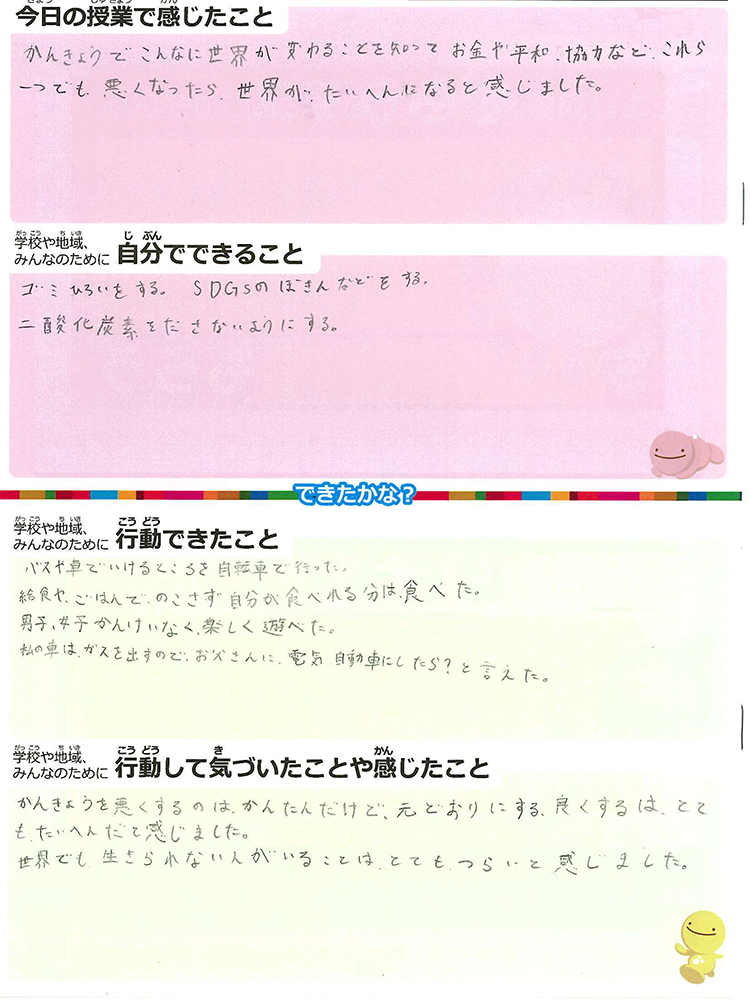 今日の授業で感じたこと
かんきょうでこんなに世界が変わることを知ってお金や平和、協力など、これら
一つでも、悪くなったら、世界が、たいへんになると感じました。
がっこう ちいき じぶん
学校や地域、
みんなのために 自分でできること
ゴミひろいをする。 SDGsのぼきんなどをする。
二酸化炭素をださないようにする。
できたかな?
がっこう ちいき こうどう
学校や地域、
みんなのために 行動できたこと
バスや車でいけるところを自転車で行った。
給食や、ごはんで、のこさず自分が食べれる分は、食べた。
男子、女子かんけいなく、楽しく遊べた。
私の車は、ガスを出すので、お父さんに、電気自動車にしたら?と言えた。
がっこう ちいき こうどう き かん
学校や地域、
みんなのために 行動して気づいたことや感じたこと
かんきょうを悪くするのは、かんたんだけど、元どおりにする、良くするは、とて
も、たいへんだと感じました。
世界でも生きられない人がいることは、とても、つらいと感じました。